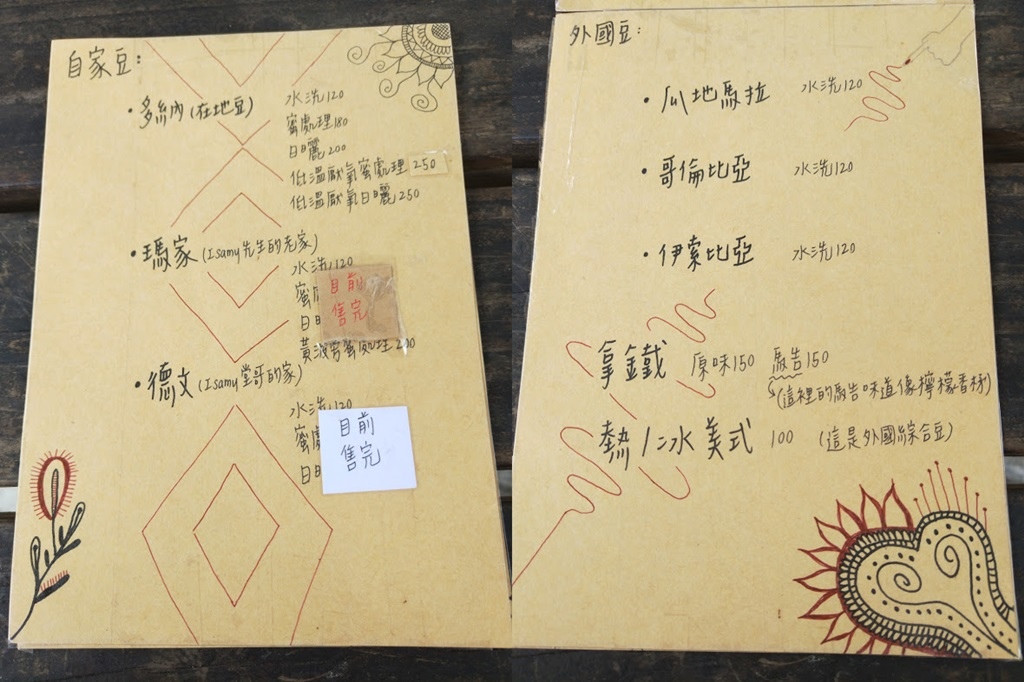 自家豆:
·多納(在地豆)
水洗120
蜜處理180
日曬200
低溫厭氧蜜處理250
低溫厭氧日曬250
·瑪家(Isamy先生的老家)
水洗120
蜜
日
目前
售完
黃波旁蜜處理200
·德文(Isamy堂哥的家)
水洗120
蜜處
日
目前
售完
外國豆:
·瓜地馬拉 水洗120
·哥倫比亞 水洗120
·伊索比亞 水洗120
拿鐵 原味150 馬告150
(這裡的馬告味道像檸檬香林)
熱/冰美式 100 (這是外國綜合豆)